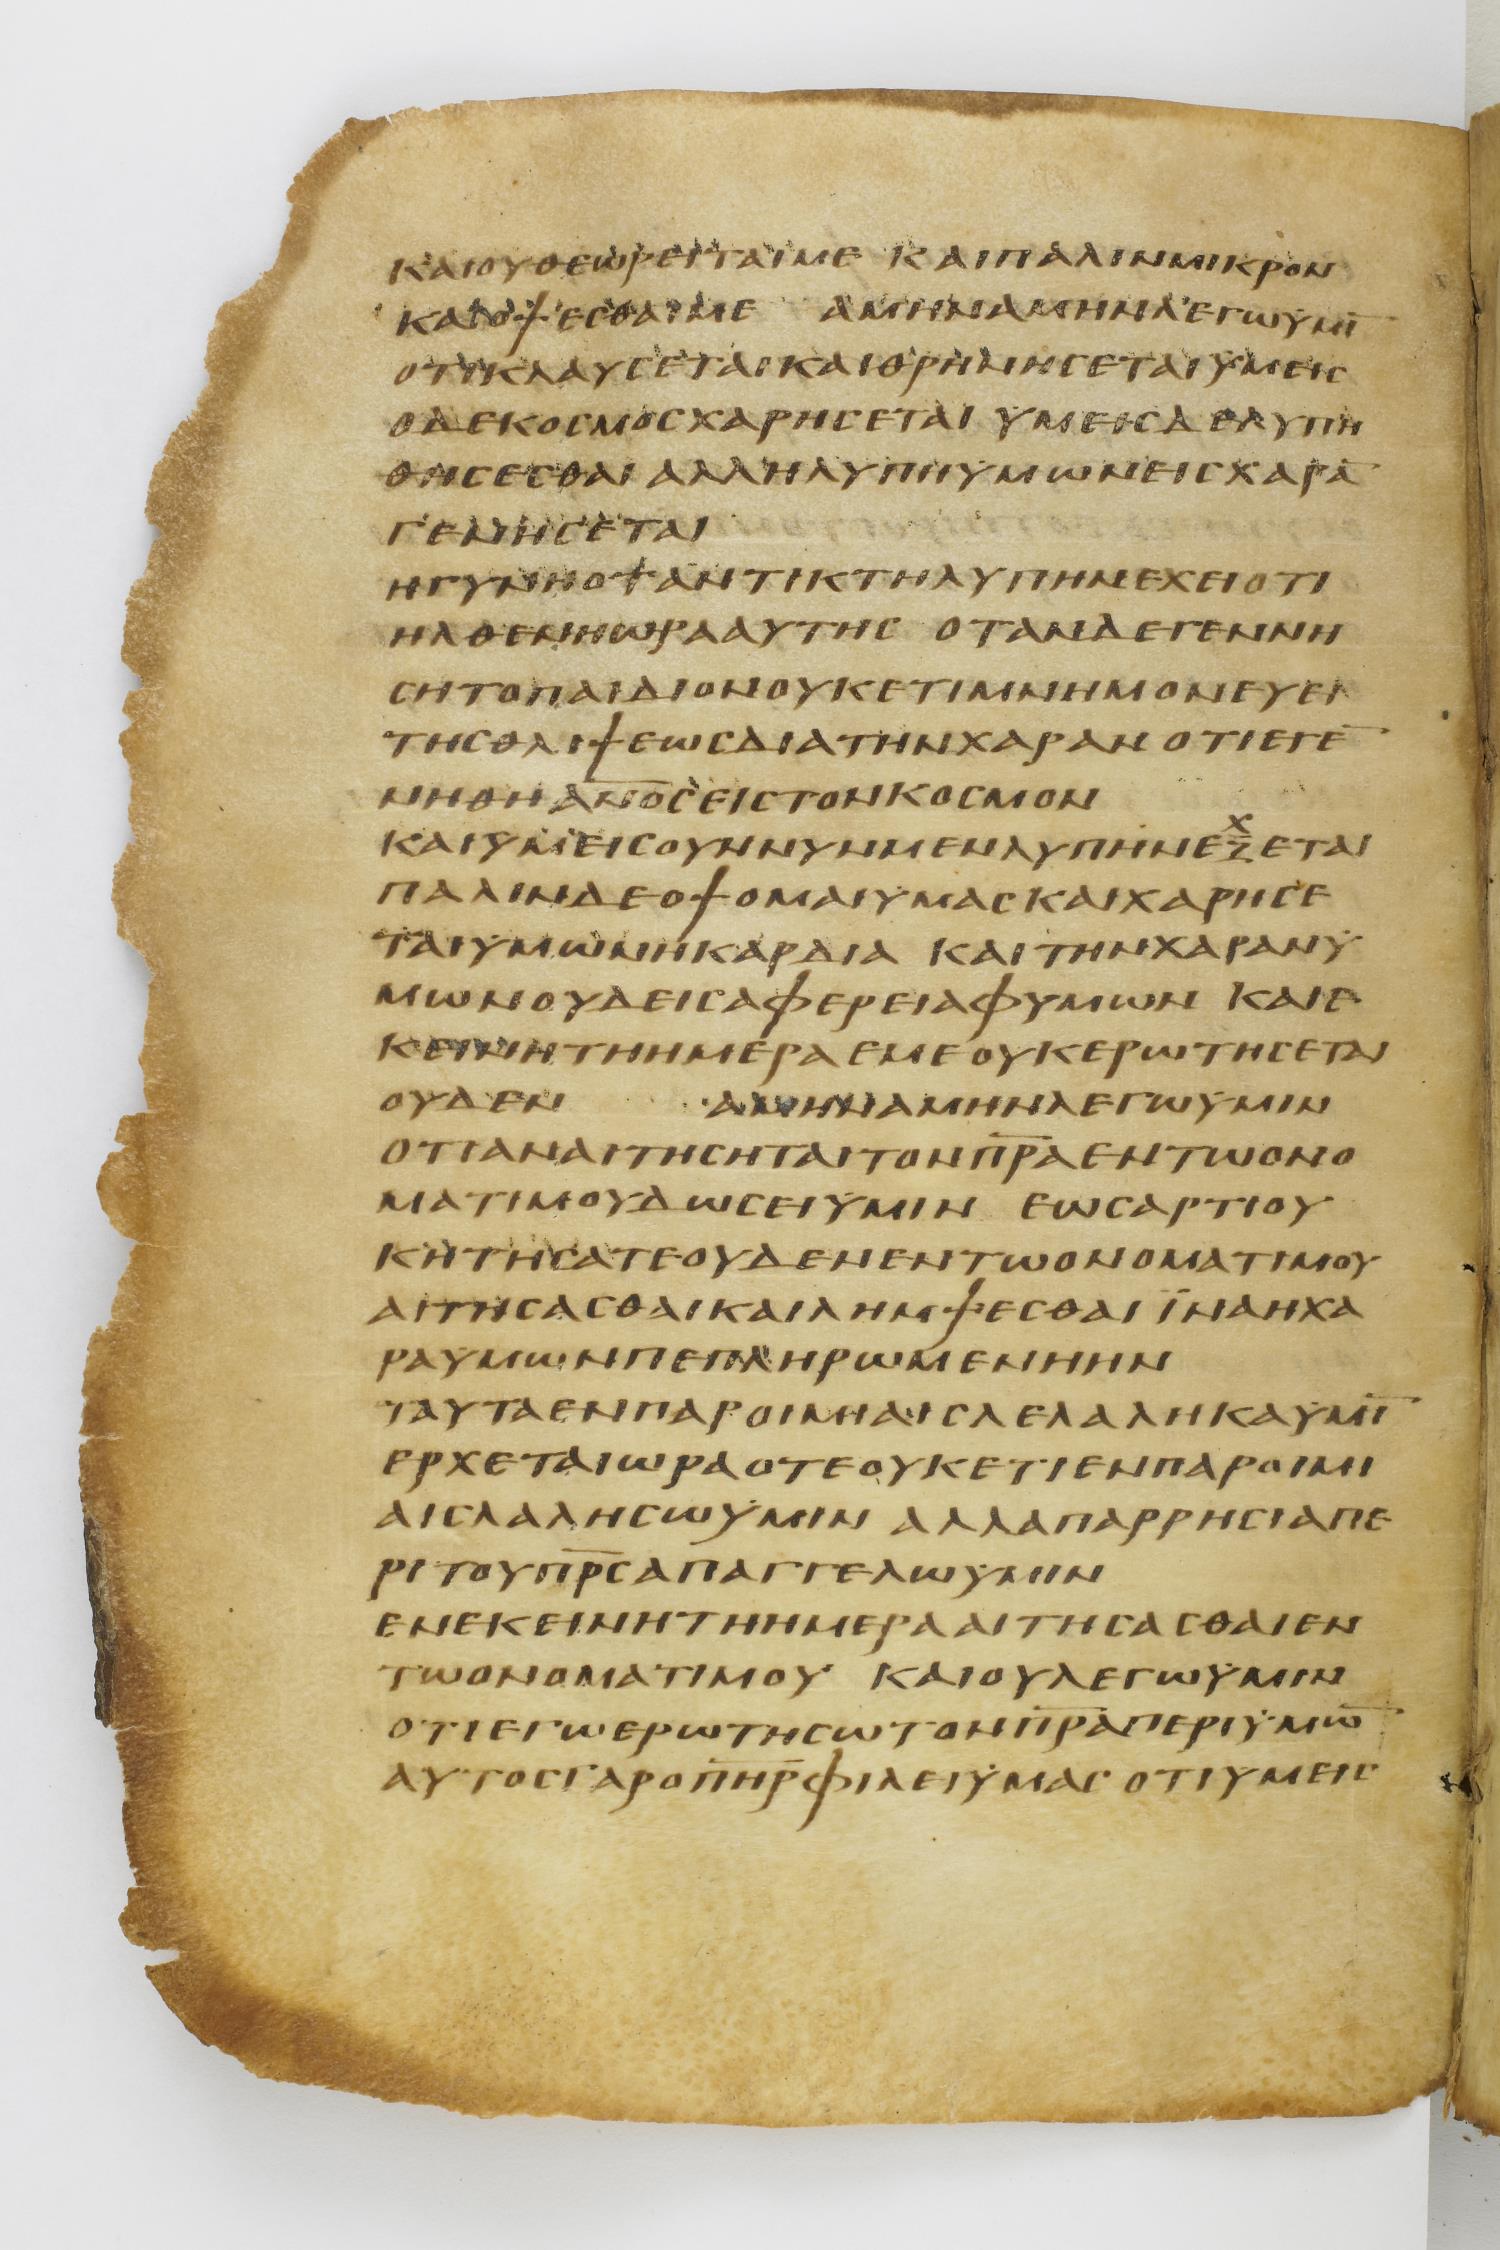 ΚΑΙΟΥΘΕΩΡΕΙΤΑΙΜΕ ΚΑΙΠΑΛΙΝΜΙΚΡΟΝ
ΚΑΙΟΨΕΣΘΑΙΜΕ ΑΜΗΝΑΜΗΝΛΕΓΩΫΜΙ̅
ΟΤΙΚΛΑΥΣΕΤΑΙΚΑΙΘΡΗΝΗΣΕΤΑΙΫΜΕΙΣ
ΟΔΕΚΟΣΜΟΣΧΑΡΗΣΕΤΑΙ ΫΜΕΙΣΔΕΛΥΠΗ
ΘΗΣΕΣΘΑΙΑΛΛΗΛΥΠΗΫΜΩΝΕΙΣΧΑΡΑ̅
ΓΕΝΗΣΕΤΑΙ
ΗΓΥΝΗΟΤΑΝΤΙΚΤΗΛΥΠΗΝΕΧΕΙΟΤΙ
ΗΛΘΕΝΗΩΡΑΑΥΤΗΣ ΟΤΑΝΔΕΓΕΝΝΗ
ΣΗΤΟΠΑΙΔΙΟΝΟΥΚΕΤΙΜΝΗΜΟΝΕΥΕΙ
ΤΗΣΘΛΙΨΕΩΣΔΙΑΤΗΝΧΑΡΑΝΟΤΙΕΓΕ̅
ΝΗΘΗΑ̅Ν̅Ο̅Σ̅ΕΙΣΤΟΝΚΟΣΜΟΝ
ΚΑΙΫΜΕΙΣΟΥΝΝΥΝΜΕΝΛΥΠΗΝΕΞΧΕΤΑΙ
ΠΑΛΙΝΔΕΟΨΟΜΑΙΫΜΑΣΚΑΙΧΑΡΗΣΕ
ΤΑΙΫΜΩΝΗΚΑΡΔΙΑ ΚΑΙΤΗΝΧΑΡΑΝΫ
ΜΩΝΟΥΔΕΙΣΑΦΕΡΕΙΑΦΫΜΩΝ ΚΑΙΕ
ΚΕΙΝΗΤΗΗΜΕΡΑΕΜΕΟΥΚΕΡΩΤΗΣΕΤΑΙ
ΟΥΔΕΝ ΑΜΗΝΑΜΗΝΛΕΓΩΫΜΙΝ
ΟΤΙΑΝΑΙΤΗΣΗΤΑΙΤΟΝΠ̅Ρ̅Α̅ΕΝΤΩΟΝΟ
ΜΑΤΙΜΟΥΔΩΣΕΙΫΜΙΝ ΕΩΣΑΡΤΙΟΥ
ΚΗΤΗΣΑΤΕΟΥΔΕΝΕΝΤΩΟΝΟΜΑΤΙΜΟΥ
ΑΙΤΗΣΑΣΘΑΙΚΑΙΛΗΜΨΕΣΘΑΙΪΝΑΗΧΑ
ΡΑΫΜΩΝΠΕΠΛΗΡΩΜΕΝΗΗΝ
ΤΑΥΤΑΕΝΠΑΡΟΙΜΗΑΙΣΛΕΛΑΛΗΚΑΫΜΙ̅
ΕΡΧΕΤΑΙΩΡΑΟΤΕΟΥΚΕΤΙΕΝΠΑΡΟΙΜΙ
ΑΙΣΛΑΛΗΣΩΫΜΙΝ ΑΛΛΑΠΑΡΡΗΣΙΑΠΕ
ΡΙΤΟΥΠ̅Ρ̅Σ̅ΑΠΑΓΓΕΛΩΫΜΙΝ
ΕΝΕΚΕΙΝΗΤΗΗΜΕΡΑΑΙΤΗΣΑΣΘΑΙΕΝ
ΤΩΟΝΟΜΑΤΙΜΟΥ ΚΑΙΟΥΛΕΓΩΫΜΙΝ
ΟΤΙΕΓΩΕΡΩΤΗΣΩΤΟΝΠ̅Ρ̅Α̅ΠΕΡΙΫΜΩ̅
ΑΥΤΟΣΓΑΡΟΠ̅Η̅Ρ̅ΦΙΛΕΙΫΜΑΣ ΟΤΙΥΜΕΙΣ